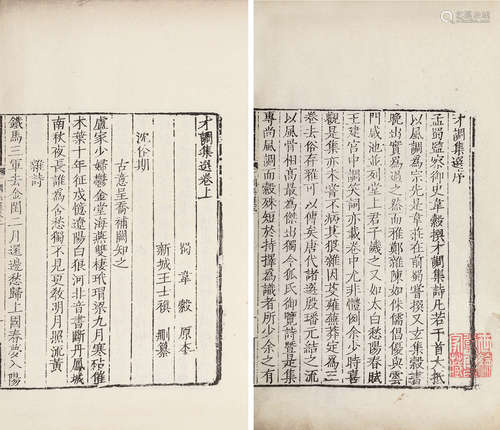 才調集選序
孟蜀監察御史韋縠撰才調集詩凡若干首大抵
以風調為宗先是韋莊在前蜀嘗撰又玄集縠書
晚出實為道之然而雅鄭雜陳如侏儒倡優與雲
門咸池並列堂上君子譏之又如太白愁陽春賦
王建宮中調笑詞亦載卷中尤非體例余少時喜
觀是集亦未嘗不病其猥雜也芟薙蕪莽定為三
卷去俗存雅可以傳矣唐代諸選殷璠元結之流
以風骨相高最為傑出獨令狐氏御覽詩是集
專尚風調而縠殊短於持擇為識者所少余之有
才調集選卷上
蜀 韋縠 原本
新城王士禛 刪纂
沈佺期
古意呈喬補闕知之
盧家少婦鬱金堂海燕雙棲玳瑁梁九月寒砧催
木葉十年征戍憶遼陽白狼河北音書斷丹鳳城
南秋夜長誰為含愁獨不見更教明月照流黃
雜詩
鐵馬三軍去金閨二月還邊愁歸上國春夢入陽